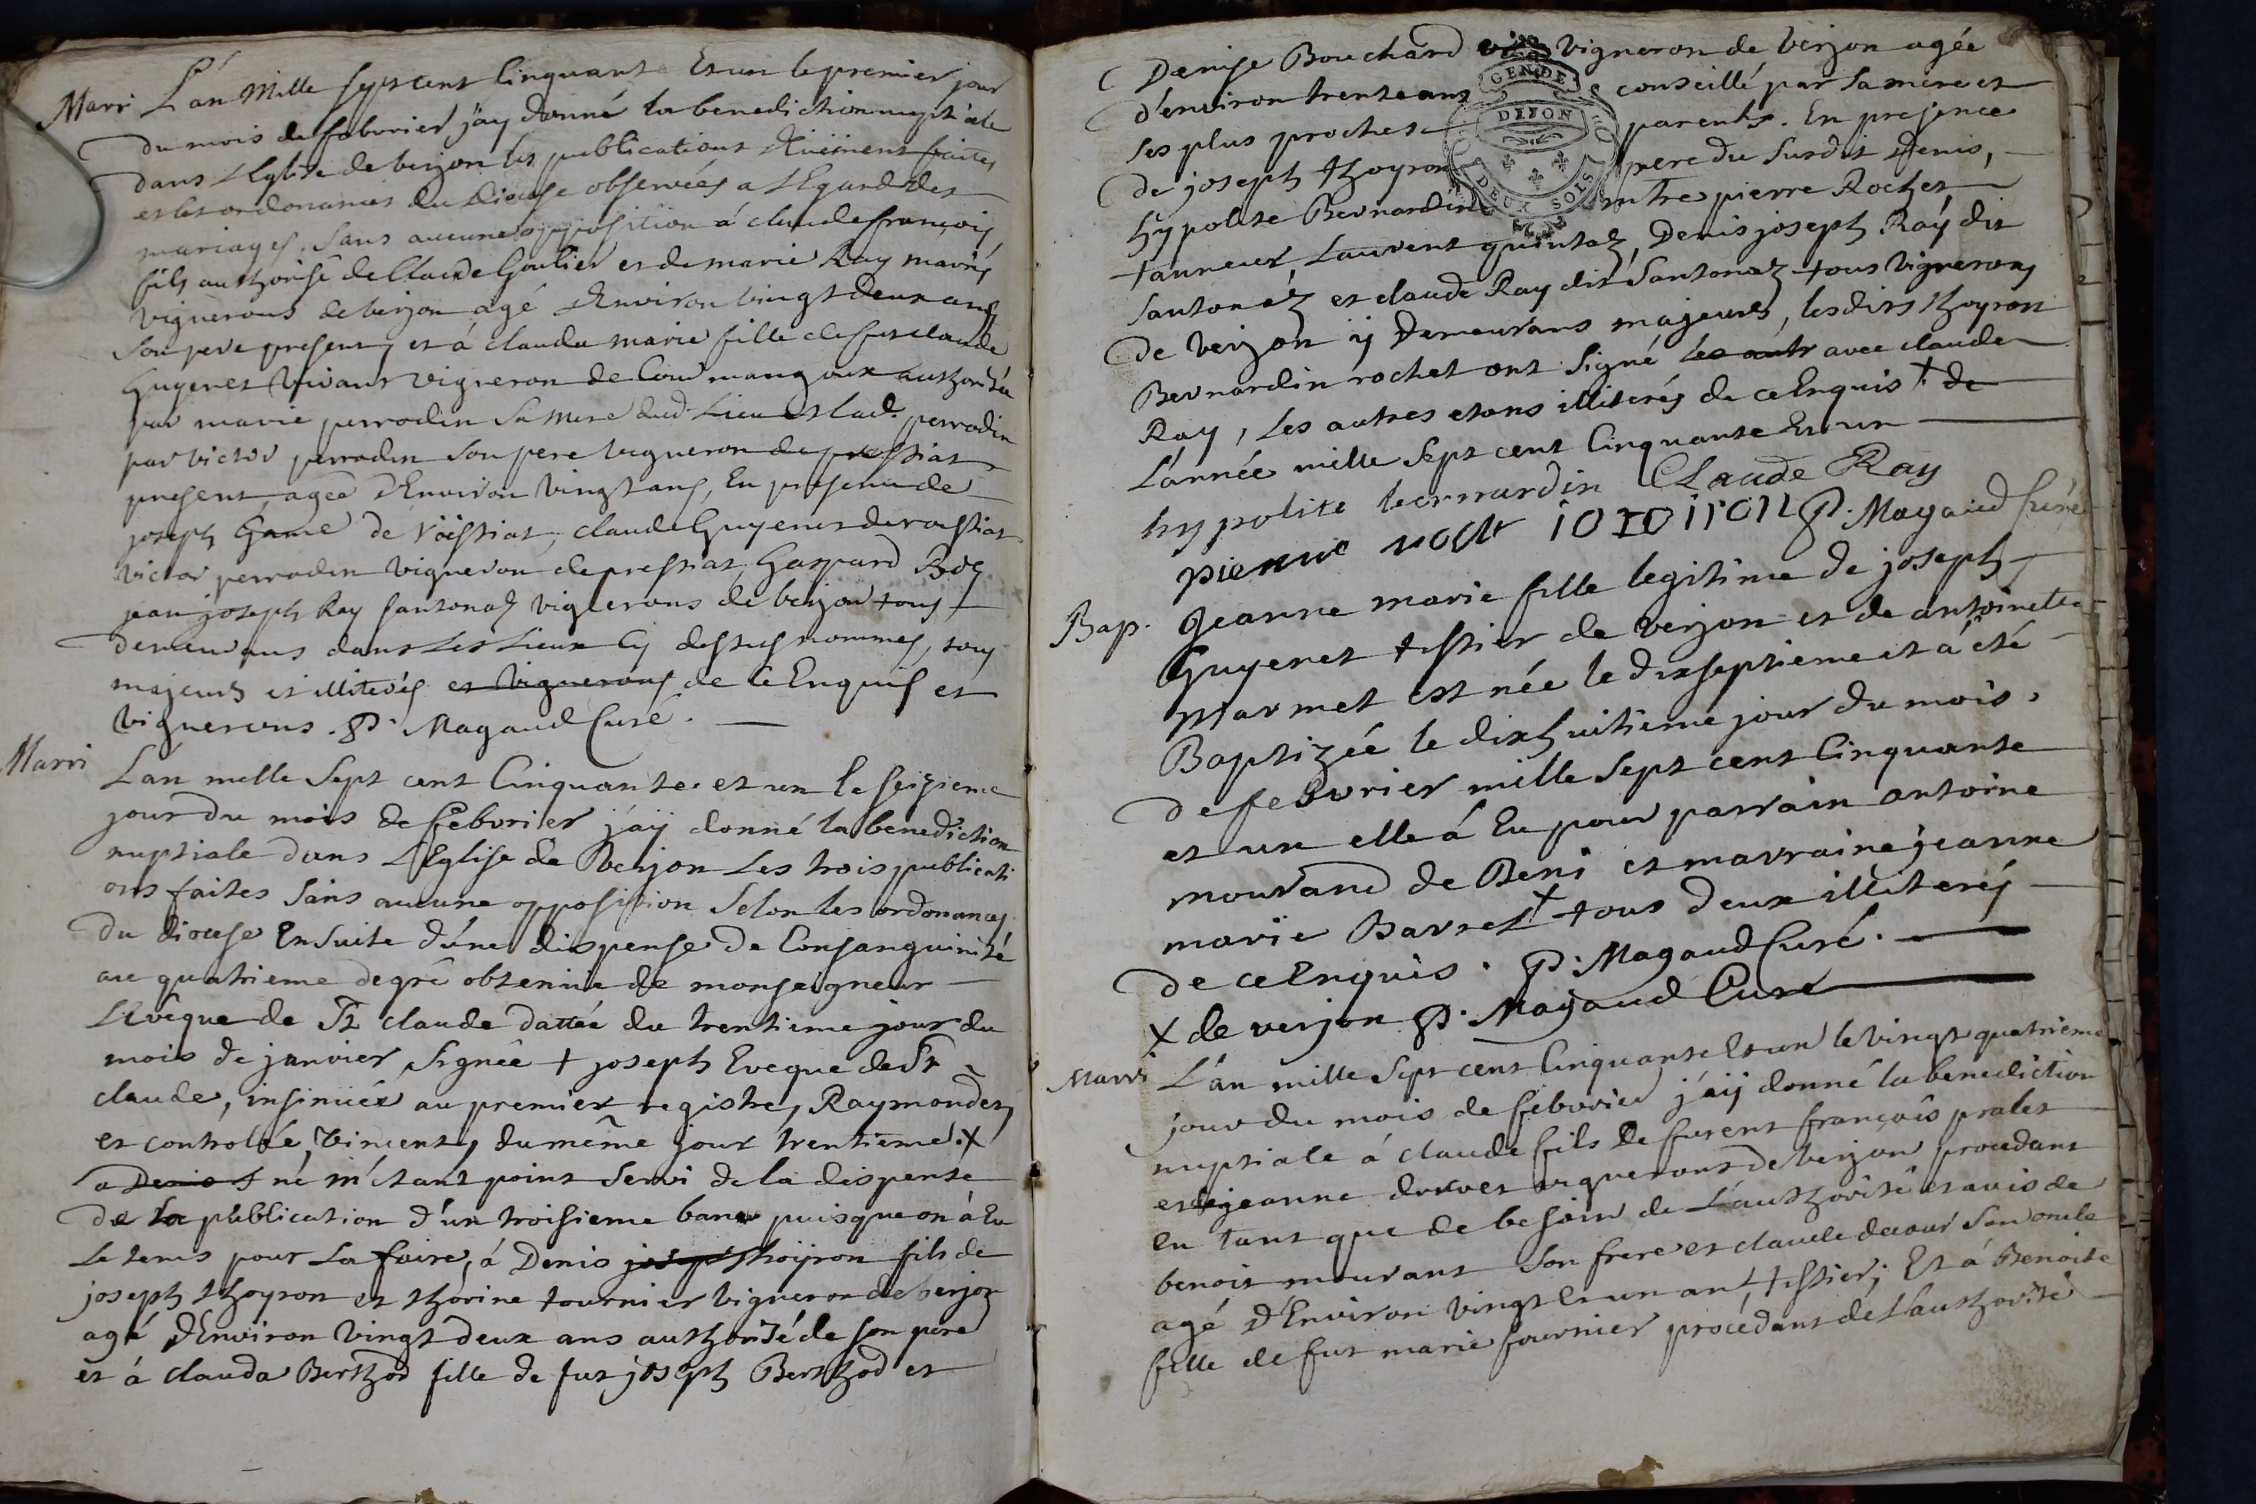 Marri L'an Mille Sept cent Cinquante Et un le premier jour
du mois de febvrier j'ay donné la benediction nuptiale
dans L'Eglise de verjon les publications duëment faites
et les ordonances du Diocese observées a L'Egard des
mariages. Sans aucune opposition á claude françois
fils authorisé de Claude Goulier et de marie Ray mariés
vignerons de verjon agé d'Environ vingt deux ans
Son pere present, et á clauda marie fille de fut claude
Guyenet vivant vigneron de Courmangoux authorisée
par marie perrodin Sa mere dud. Lieu et lad. perrodin
par victor perrodin Son pere vigneron de pressiat
present, agée d'Environ vingt ans, En presence de
joseph Game de roissiat, claude Guyenet de roissiat
victor perrodin vigneron de pressiat, Gaspard Boz
jean joseph Ray Santonaz vignerons de verjon tous
demeurans dans Les Lieux Cy dessus nommés, tous
majeurs et illiterés et vignerons de ce Enquis et
vignerons. P. Magaud Curé.
Marri L'an mille Sept cent Cinquante et un le seizieme
jour du mois de febvrier j'aÿ donné la benediction
nuptiale dans L'Eglise de verjon Les trois publicati
ons faites Sans aucune opposition Selon les ordonances
du diocese Ensuite d'une dispense de Consanguinité
au quatrieme degré obtenüe de monseigneur
L'Evêque de St claude dattée du trentieme jour du
mois de janvier Signée + joseph Eveque de St
claude, insinuée au premier registre, Raymondet,
et controlée, vincent, du même jour trentieme. X
a Denis f né m'étant point Servi de la dispense
de la publication d'un troisieme banc puisque on á Eu
Le tems pour La faire, á Denis joseph thoÿron fils de
joseph thoyron et thorine tournier vigneron de verjon
agé d'Environ vingt deux ans authorisé de son pere
et á clauda Berthod fille de fut joseph Berthod et
Denise Bouchard vigneron de verjon agée
d'environ trente ans conseillé par Sa mere et
Ses plus proches parents. En presence
de joseph thoyron pere du Susdit Denis,
hypolite Bernardin pierre Rochet
tanneur, Laurent quintaz, Denis joseph Raÿ dit
Santonaz et claude Ray dit Santonaz tous vignerons
de verjon ÿ Demeurans majeurs, lesdits thoyron
Bernardin rochet ont Signé les autr avec claude
Ray, Les autres etans illiterés de ce Enquis + de
L'année mille Sept cent Cinquante Et un
hypolite bernardin Claude Ray
pierre P. Magaud Curé
Bap. Jeanne marie fille legitime de joseph
Guyenet tissier de verjon et de antoinette
marmet est née le dixseptieme et á été
Baptizée le dixhuitieme jour du mois
de febvrier mille Sept cent Cinquante
et un elle á Eu pour parrain antoine
mourand de Beni et marraine jeanne
marie Barret + tous deux illiterés
de ce Enquis. P. Magaud Curé.
X de verjon P. Magaud Curé
Marri L'an mille Sept cent Cinquante Et un le vingt quatrieme
jour du mois de febvrier j'aÿ donné la benediction
nuptiale á claude fils de furent françois pralet
et de jeanne vignerons de verjon procedant
En tant que de besoin de L'authorité et avis de
benoit mourant Son frere et claude Son oncle
agé d'Environ vingt Et un an, tissier; Et á Benoite
fille de fut marie fournier procedant de L'authorité
GEN DE
DIJON
DEUX SOLS